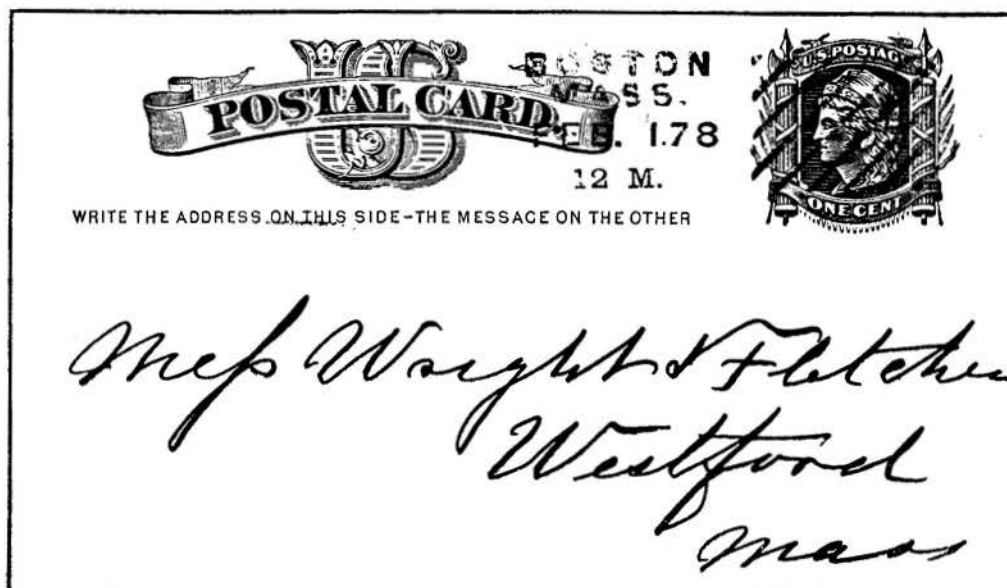 US
POSTAL CARD.
BOSTON
MASS.
FEB. 1.78
12 M.
U.S. POSTAGE
ONE CENT
WRITE THE ADDRESS ON THIS SIDE–THE MESSAGE ON THE OTHER
Mess Wright & Fletcher
Westford
Mass